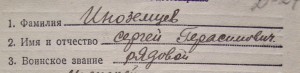 1. Фамилия Иноземцев
2. Имя и отчество Сергей Герасимович
3. Воинское звание рядовой